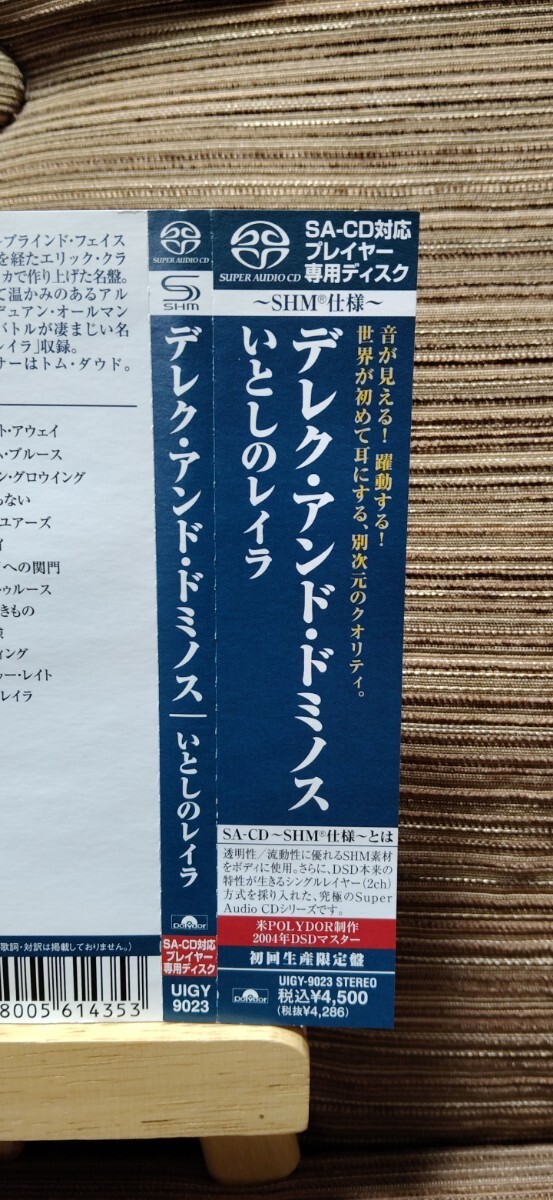 ブラインド・フェイス
を経たエリック・クラ
カで作り上げた名盤。
て温かみのあるアル
デュアン・オールマン
バトルが凄まじい名
レイラ」収録。
ナーはトム・ダウド。
ト・アウェイ
ム・ブルース
ン・グロウイング
らない
ユアーズ
ィ
への関門
トゥルース
きもの
ィング
ゥー・レイト
レイラ
歌詞・対訳は掲載しておりません。)
8005 614353
SUPER AUDIO CD
SHM
デレク・アンド・ドミノス|いとしのレイラ
polydor
SA-CD対応
プレイヤー
専用ディスク
UIGY
9023
SUPER AUDIO CD
SA-CD対応
プレイヤー
専用ディスク
〜SHM®仕様〜
音が見える! 躍動する!
世界が初めて耳にする、別次元のクオリティ。
デレク・アンド・ドミノス
いとしのレイラ
SA-CD〜SHM®仕様〜とは
透明性/流動性に優れるSHM素材
をボディに使用。さらに、DSD本来の
特性が生きるシングルレイヤー(2ch)
方式を採り入れた、究極のSuper
Audio CDシリーズです。
米POLYDOR制作
2004年DSDマスター
初回生産限定盤
polydor
UIGY-9023 STEREO
税込¥4,500
(税抜¥4,286)